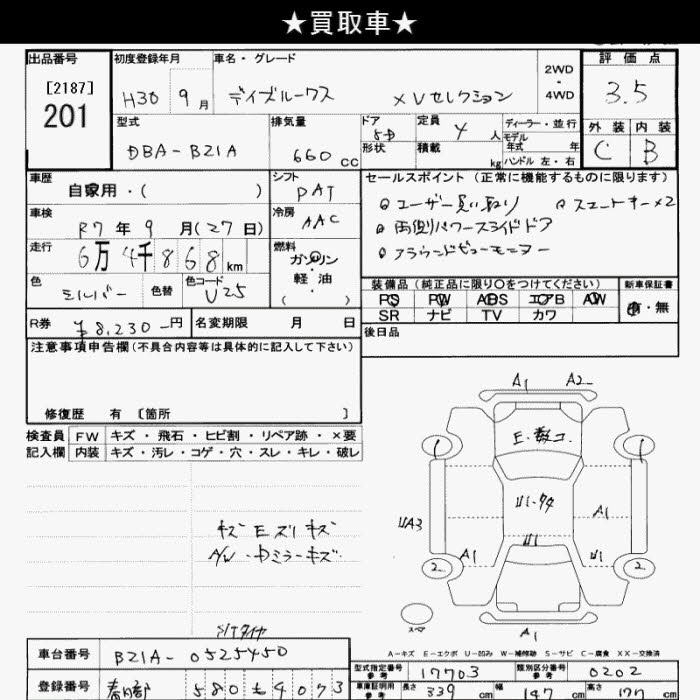 ★買取車★
出品番号 [2187] 201
初度登録年月 H30 9月
車名・グレード デイズルークス XVセレクション
2WD・4WD
評価点 3.5
型式 DBA-B21A
排気量 660cc
ドア 5D 形状
定員 4人 積載 kg
ディーラー・並行
モデル年式 年
ハンドル 左・右
外装 内装
C B
車歴 自家用・( )
シフト PAT
車検 R7年9月(27日)
冷房 AAC
走行 6万4千868km
燃料 ガソリン・軽油・( )
色 シルバー 色替 色コード U25
R券 ¥8,230-円 名変期限 月 日
セールスポイント(正常に機能するものに限ります)
◎ユーザー買い取り ◎スマートキー×2
◎両側パワースライドドア
◎アラウンドビューモニター
装備品(純正品に限り○をつけてください) 新車保証書
PS PW ABS エアB AW 有・無
SR ナビ TV カワ
後日品
注意事項申告欄(不具合内容等は具体的に記入して下さい)
修復歴 有 〔箇所 〕
検査員記入欄
FW キズ・飛石・ヒビ割・リペア跡・×要
内装 キズ・汚レ・コゲ・穴・スレ・キレ・破レ
キズ Eズリキズ
A/W・Dミラーキズ
S/Tタイヤ
A1 A2
UA3
A1
U1
A1 U1
2 2
A1
スペア
A-キズ E-エクボ U-凹み W-補修跡 S-サビ C-腐食 XX-交換済
車台番号 B21A-0525450
登録番号 春日部 580 も 4073
型式指定番号 参考 17703 類別区分番号 参考 0202
車庫証明用 参考 長さ 339cm 幅 147cm 高さ 177cm